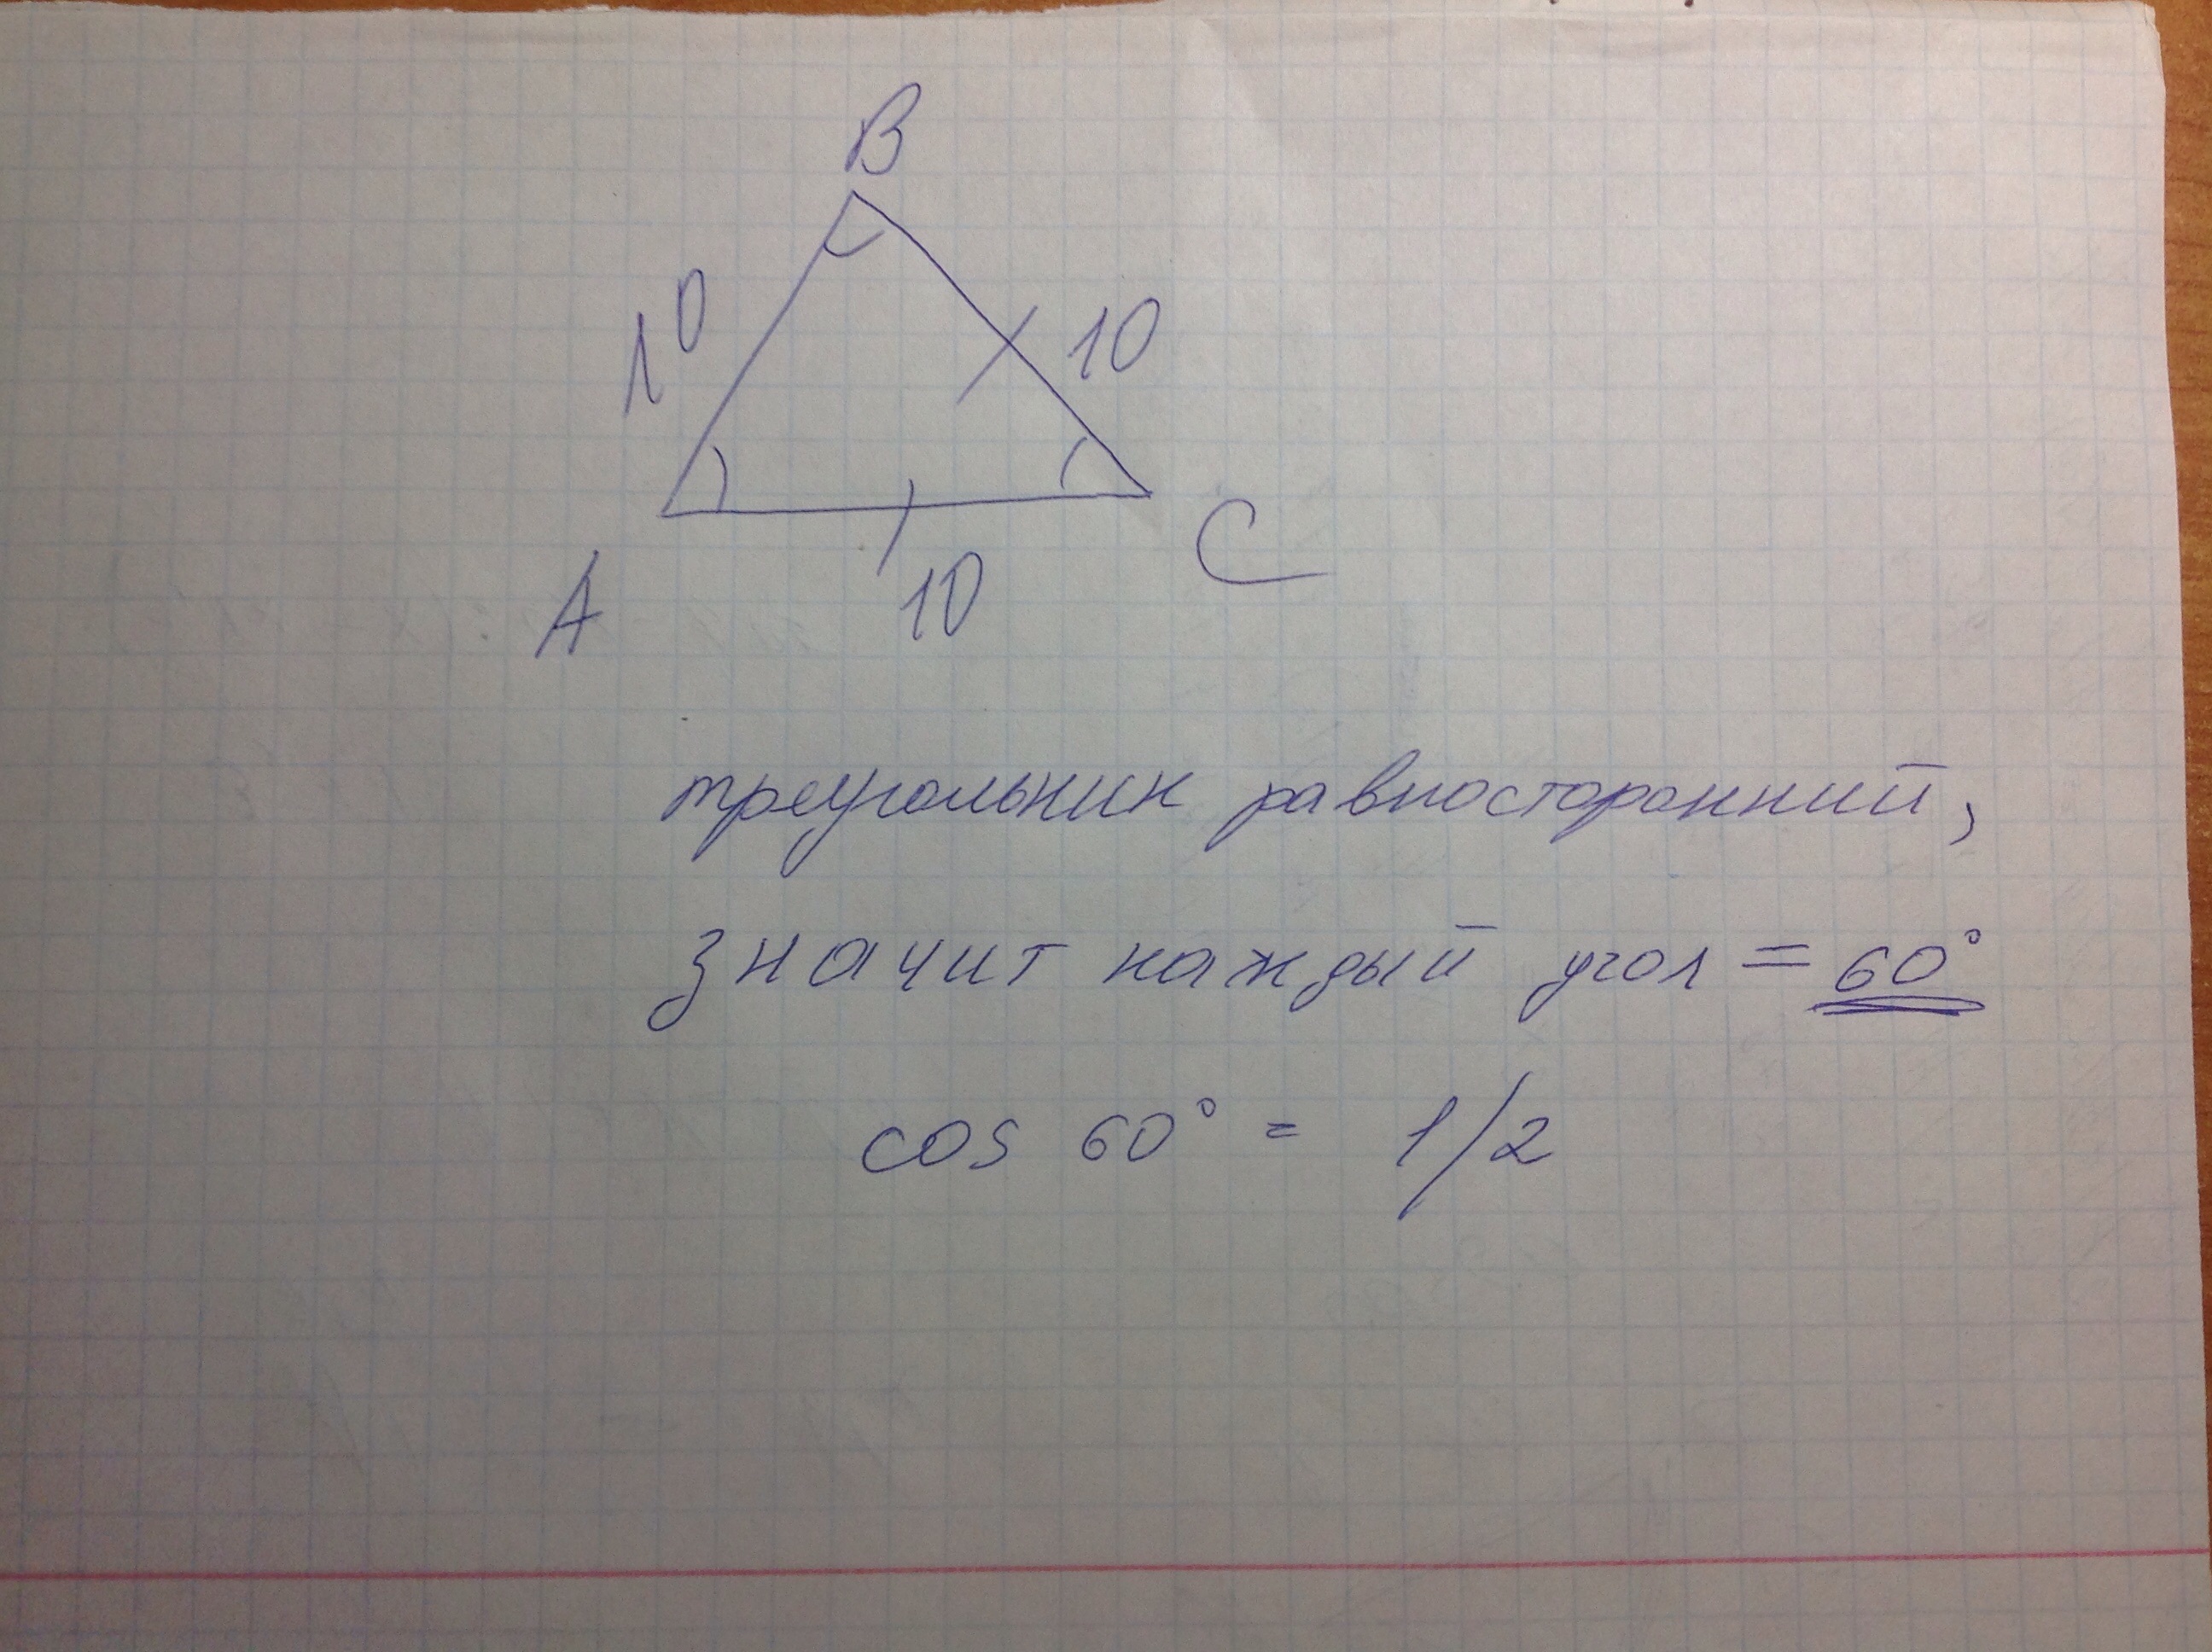 B
10
10
A
10
C
треугольник равносторонний,
значит каждый угол = 60°
cos 60° = 1/2